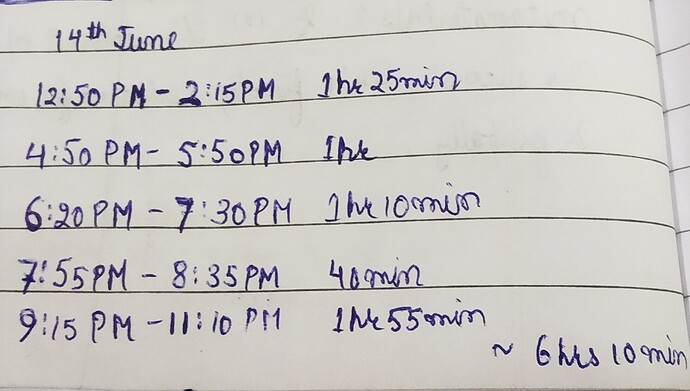 14th June
12:50 PM - 2:15PM 1hr 25min
4:50 PM - 5:50PM 1hr
6:20PM - 7:30PM 1hr 10min
7:55PM - 8:35PM 40min
9:15 PM - 11:10 PM 1hr 55min
~ 6hrs 10min